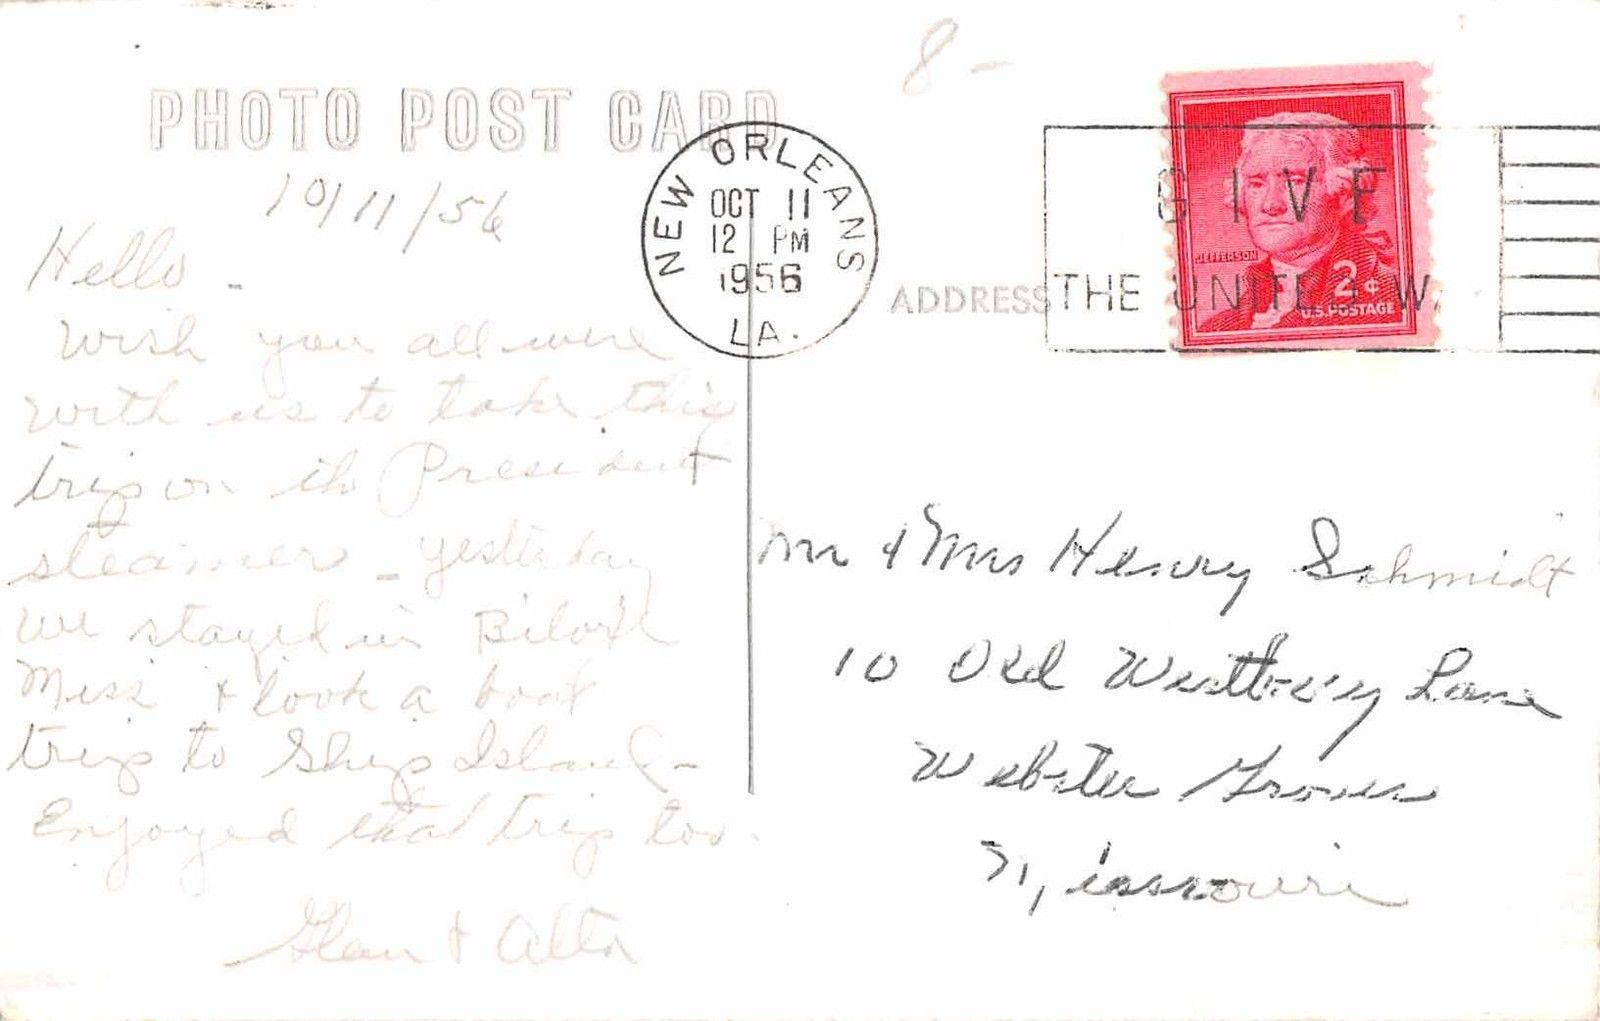 8 -
PHOTO POST CARD
NEW ORLEANS
OCT 11
12 PM
1956
LA.
GIVE
THE UNITED W
JEFFERSON
2¢
U.S. POSTAGE
ADDRESS
10/11/56
Hello -
Wish you all were
with us to take this
trip on the President
steamer - yesterday
we stayed in Biloxi
Miss & took a boat
trip to Ship Island -
Enjoyed that trip too.
& Alta
Mr & Mrs Henry Schmidt
10 Old Westbury Lane
Webster Groves
Missouri